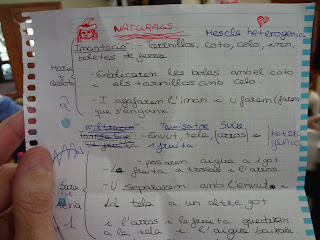 NATURALS
Mescla heterogènia
Imantació: - Tornillos, coto, celo, iman,
boletes de ferro
- Emboliquem les boles amb el coto
i els tornillos amb celo.
2
- I agafarem l'iman i u farem
que s'enganxi.
Tamisatge Sucre
- Envut, tela, arros i
1 fruita
heterogènia
- posarem aigua a 1 got
fruita a trossos i l'arros.
- U separarem amb l'envut i
la tela a un altre got
i l'arros i la fruita quedaran
a la tela i l'aigua baixara
1